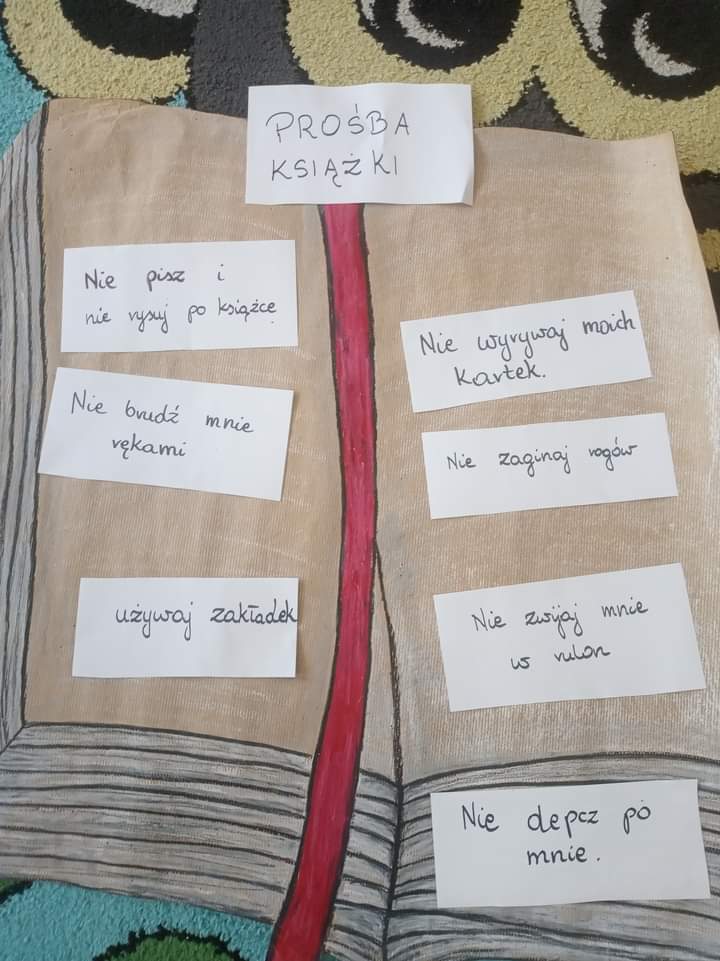 PROŚBA
KSIĄŻKI
Nie pisz i
nie rysuj po książce
Nie brudź mnie
rękami
używaj zakładek
Nie wyrywaj moich
kartek.
Nie zaginaj rogów
Nie zwijaj mnie
w rulon
Nie depcz po
mnie.